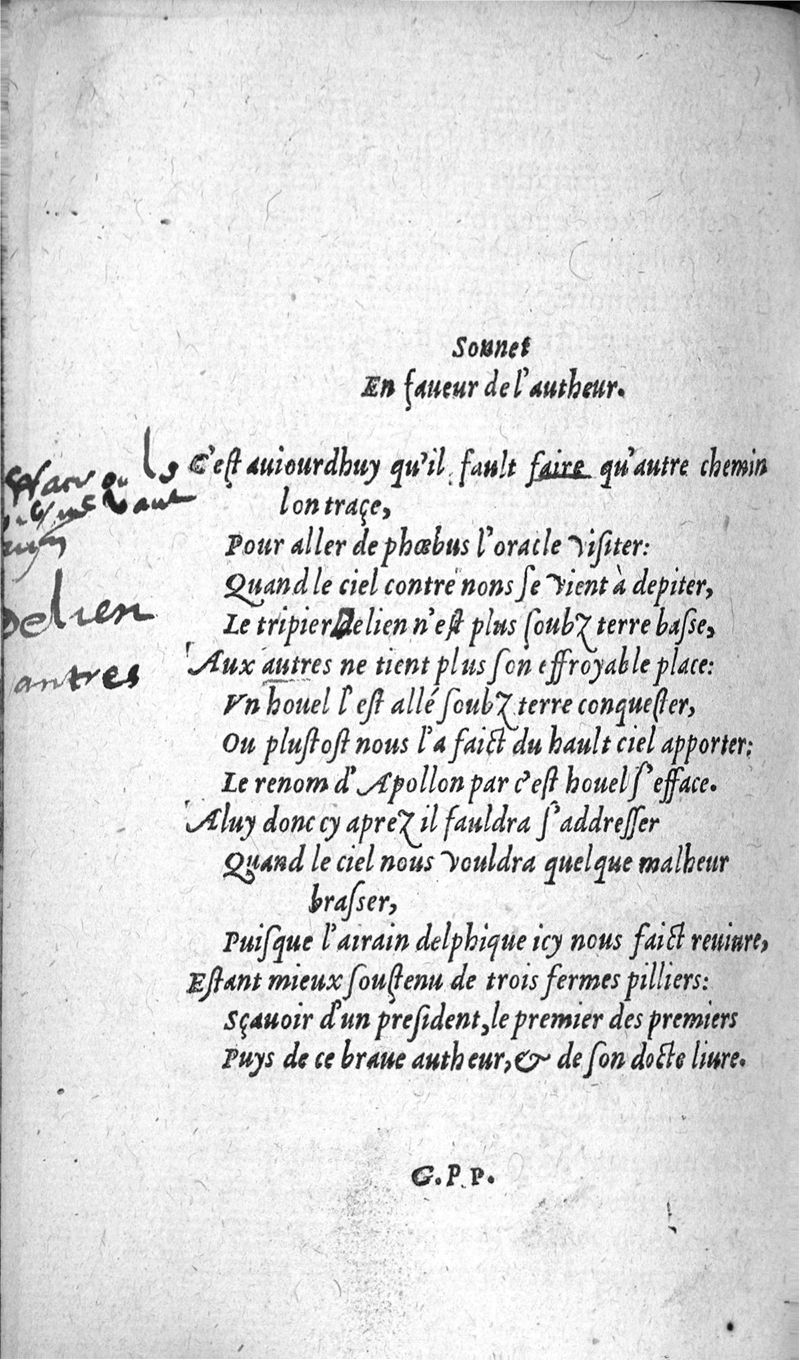 Sonnet
En faueur de l'autheur.
C'eſt auiourdhuy qu'il fault faire qu'autre chemin
lon traçe,
Pour aller de phœbus l'oracle viſiter:
Quand le ciel contre nons ſe vient à depiter,
Le tripier Delien n'eſt plus ſoubz terre baſſe,
Delien
Aux autres ne tient plus ſon effroyable place:
antres
Vn houel l'eſt allé ſoubz terre conqueſter,
Ou pluſtoſt nous l'a faict du hault ciel apporter:
Le renom d'Apollon par c'eſt houel ſ'efface.
A luy donc cy aprez il fauldra ſ'addreſſer
Quand le ciel nous vouldra quelque malheur
braſſer,
Puiſque l'airain delphique icy nous faict reuiure,
Eſtant mieux ſouſtenu de trois fermes pilliers:
Sçauoir d'un preſident, le premier des premiers
Puys de ce braue autheur, & de ſon docte liure.
G. P. P.